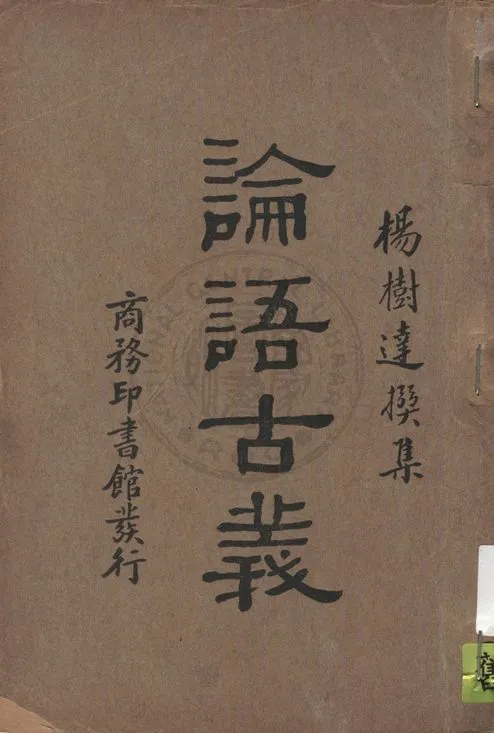 楊樹達撰集
論語古義
商務印書館發行
NATIONAL CENTRAL LIBRARY
舊